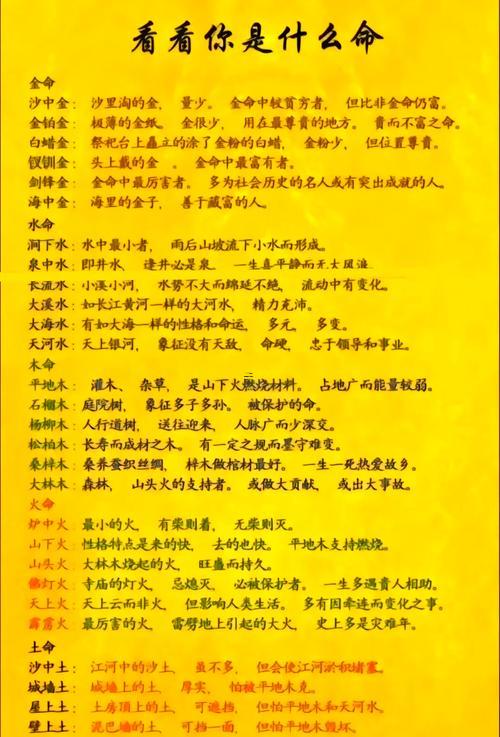 看看你是什么命
金命
沙中金： 沙里淘的金， 量少。 金命中较贫穷者， 但比非金命仍富。
金铂金： 极薄的金纸。 金很少， 用在最尊貴的地方。 貴而不富之命。
白蜡金： 祭祀台上矗立的涂了金粉的白蜡， 金粉少， 但位置尊貴。
钗钏金： 头上戴的金 。 金命中最富有者。
剑锋金： 金命中最厉害者。 多为社会历史的名人或有突出成就的人。
海中金： 海里的金子， 善于藏富的人。
水命
涧下水： 水中最小者， 雨后山坡流下小水而形成。
泉中水： 即井水， 逢井必是泉 一生喜平静而无大风浪
长流水： 小溪小河， 水势不大而绵延不绝， 流动中有变化。
大溪水： 如长江黄河一样的大河水， 精力充沛。
大海水： 有如大海一样的性格和命运， 多元， 多变。
天河水： 天上银河， 象征没有天敌， 命硬， 忠于领导和事业。
木命
平地木： 灌木、 杂草， 是山下火燃烧材料。 占地广而能量较弱。
石榴木： 庭院树， 象征多子多孙。 被保护的命。
杨柳木： 人行道树， 送往迎来， 人脉广而少深交。
松柏木： 长寿而成材之木。 有一定之规而墨守难变。
桑梓木： 桑养蚕织丝绸， 梓木做棺材最好。 一生一死热爱故乡。
大林木： 森林， 山头火的支持者。 或做大贡献， 或出大事故。
火命
炉中火： 最小的火， 有柴则着， 无柴则灭。
山下火： 性格特点是来的快， 去的也快。 平地木支持燃烧。
山头火： 大林木烧起的火， 旺盛而持久。
佛灯火： 寺庙的灯火， 忌熄灭， 必被保护者。 一生多遇貴人相助。
天上火： 天上云而非火， 但影响人类生活。 多有因牵连而变化之事。
霹雳火： 最厉害的火， 雷劈地上引起的大火， 史上多是灾难年。
土命
沙中土： 江河中的沙土， 虽不多， 但会使江河淤积堵塞。
城墙土： 城墙上的土， 厚实， 怕被平地木克。
屋上土： 土房顶上的土， 可遮挡， 但怕平地木和天河水。
壁上土： 泥巴墙的土， 可挡一面， 但怕平地木毁坏。